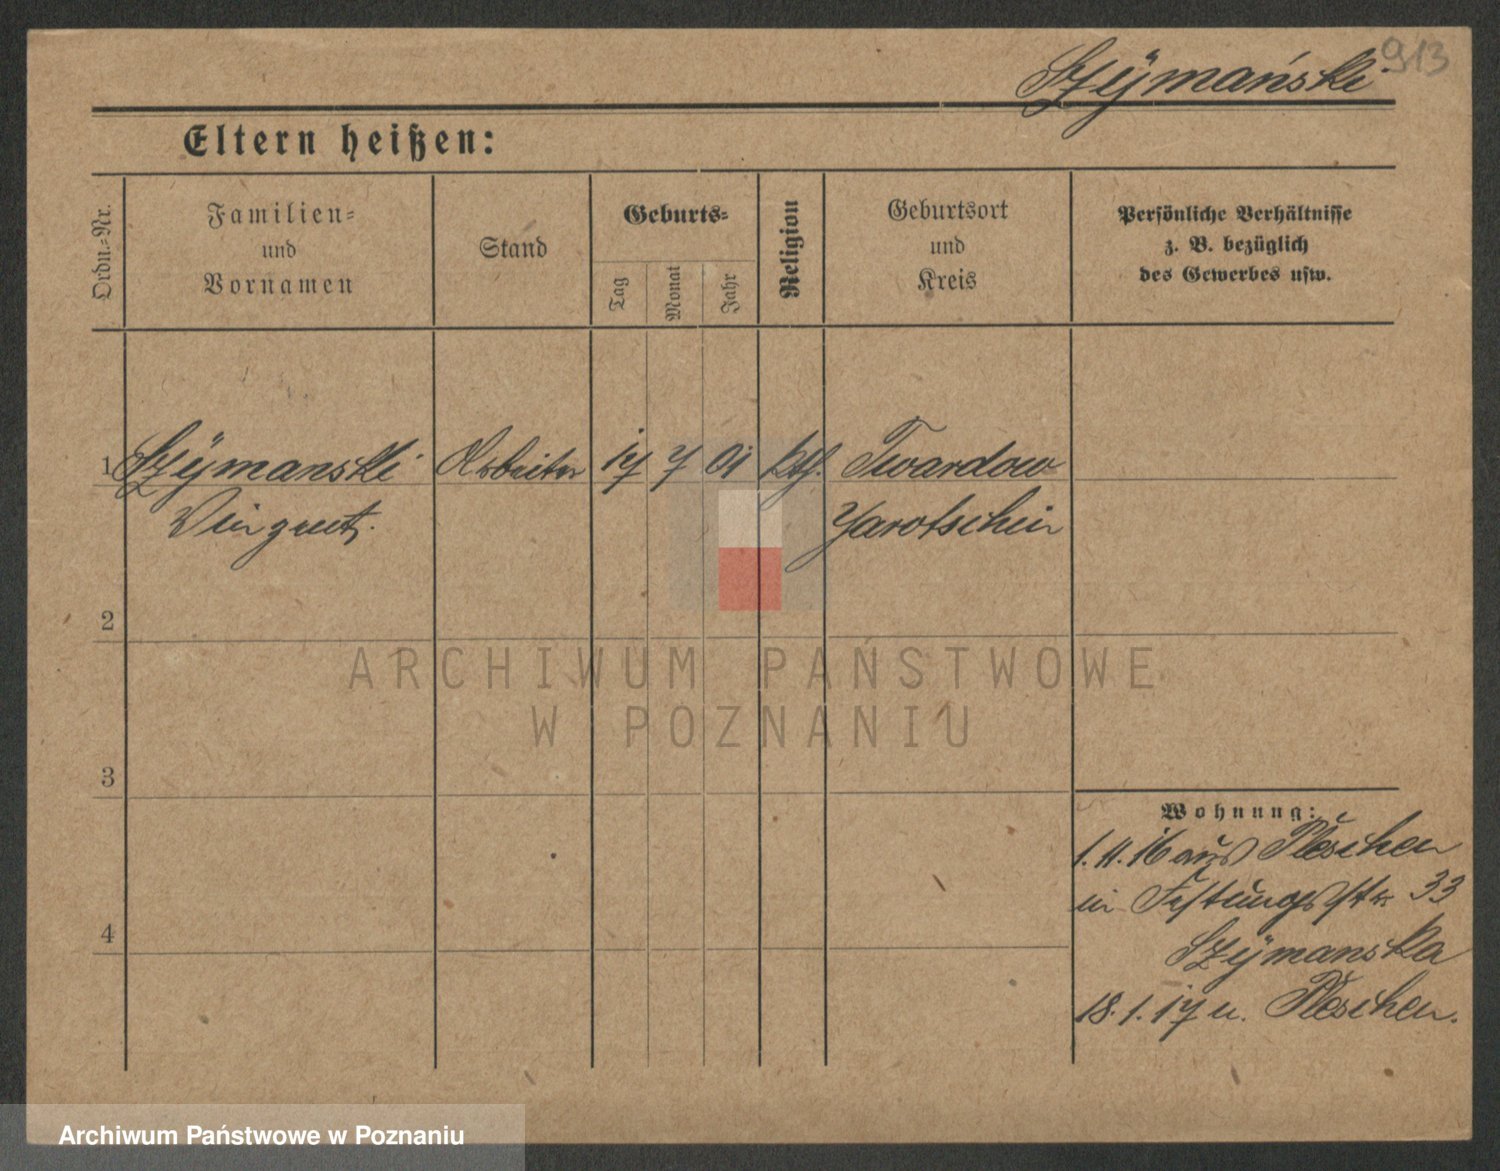 913
Szÿmański
Eltern heißen:
Ordn.=Nr.
Familien=
und
Vornamen
Stand
Geburts=
Tag
Monat
Jahr
Religion
Geburtsort
und
Kreis
Persönliche Verhältnisse
z. B. bezüglich
des Gewerbes usw.
1 Szÿmanski Arbeiter 17 7 01 kth. Twardow
Vinzent. Jarotschin
2
3
4
Wohnung:
1.11.16 aus Pleschen
in Festungsstr 33
Szÿmanska
18.1.17 n. Pleschen.
ARCHIWUM PAŃSTWOWE
W POZNANIU
Archiwum Państwowe w Poznaniu